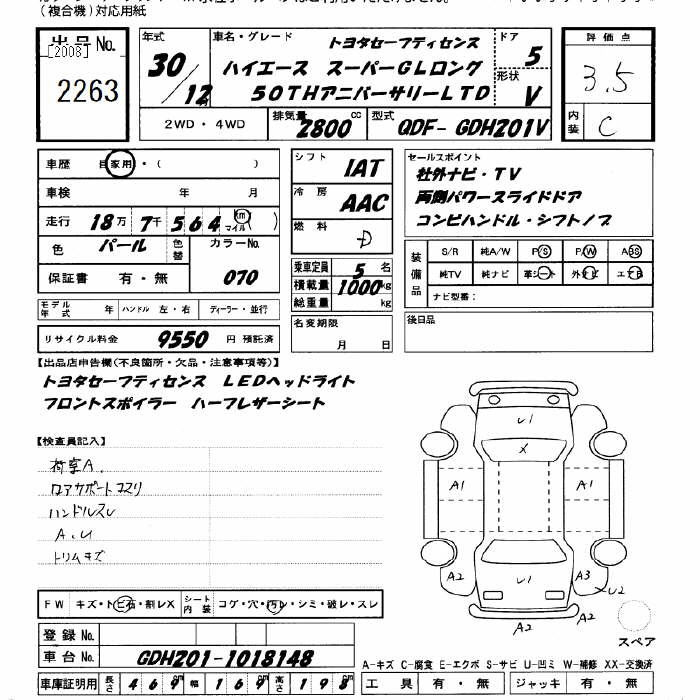 （複合機）対応用紙
出品No.
[2008]
2263
年式 30/12月
車名・グレード トヨタセーフティセンス
ハイエース スーパーGLロング
50THアニバーサリーLTD
ドア 5
形状 V
評価点
3.5
内装 C
2WD・4WD
排気量 2800 cc
型式 QDF-GDH201V
車歴 自家用・( )
車検 年 月
走行 18万 7千 564 km マイル( )
色 パール 色替 カラーNo. 070
保証書 有・無
モデル年式 年 ハンドル 左・右 ディーラー・並行
リサイクル料金 9550 円 預託済
シフト IAT
冷房 AAC
燃料 D
乗車定員 5 名
積載量 1000 kg
総重量 kg
名変期限
月 日
セールスポイント
社外ナビ・TV
両側パワースライドドア
コンビハンドル・シフトノブ
装備品
S/R 純A/W P/S P/W ABS
純TV 純ナビ 革シート 外ナビ エアB
ナビ型番：
後日品
【出品店申告欄(不良箇所・欠品・注意事項等)】
トヨタセーフティセンス LEDヘッドライト
フロントスポイラー ハーフレザーシート
【検査員記入】
荷室A.
ロアサポートコスリ
ハンドルスレ
A.U
トリムキズ
U1
X
A1
A1
A2
U1
A3
U2
A2
A2
スペア
FW キズ・トビ石・割レX シート内装 コゲ・穴・汚レ・シミ・破レ・スレ
登録No.
車台No. GDH201-1018148
車庫証明用 長さ 469 幅 169 高さ 198
A-キズ C-腐食 E-エクボ S-サビ U-凹ミ W-補修 XX-交換済
工具 有・無 ジャッキ 有・無